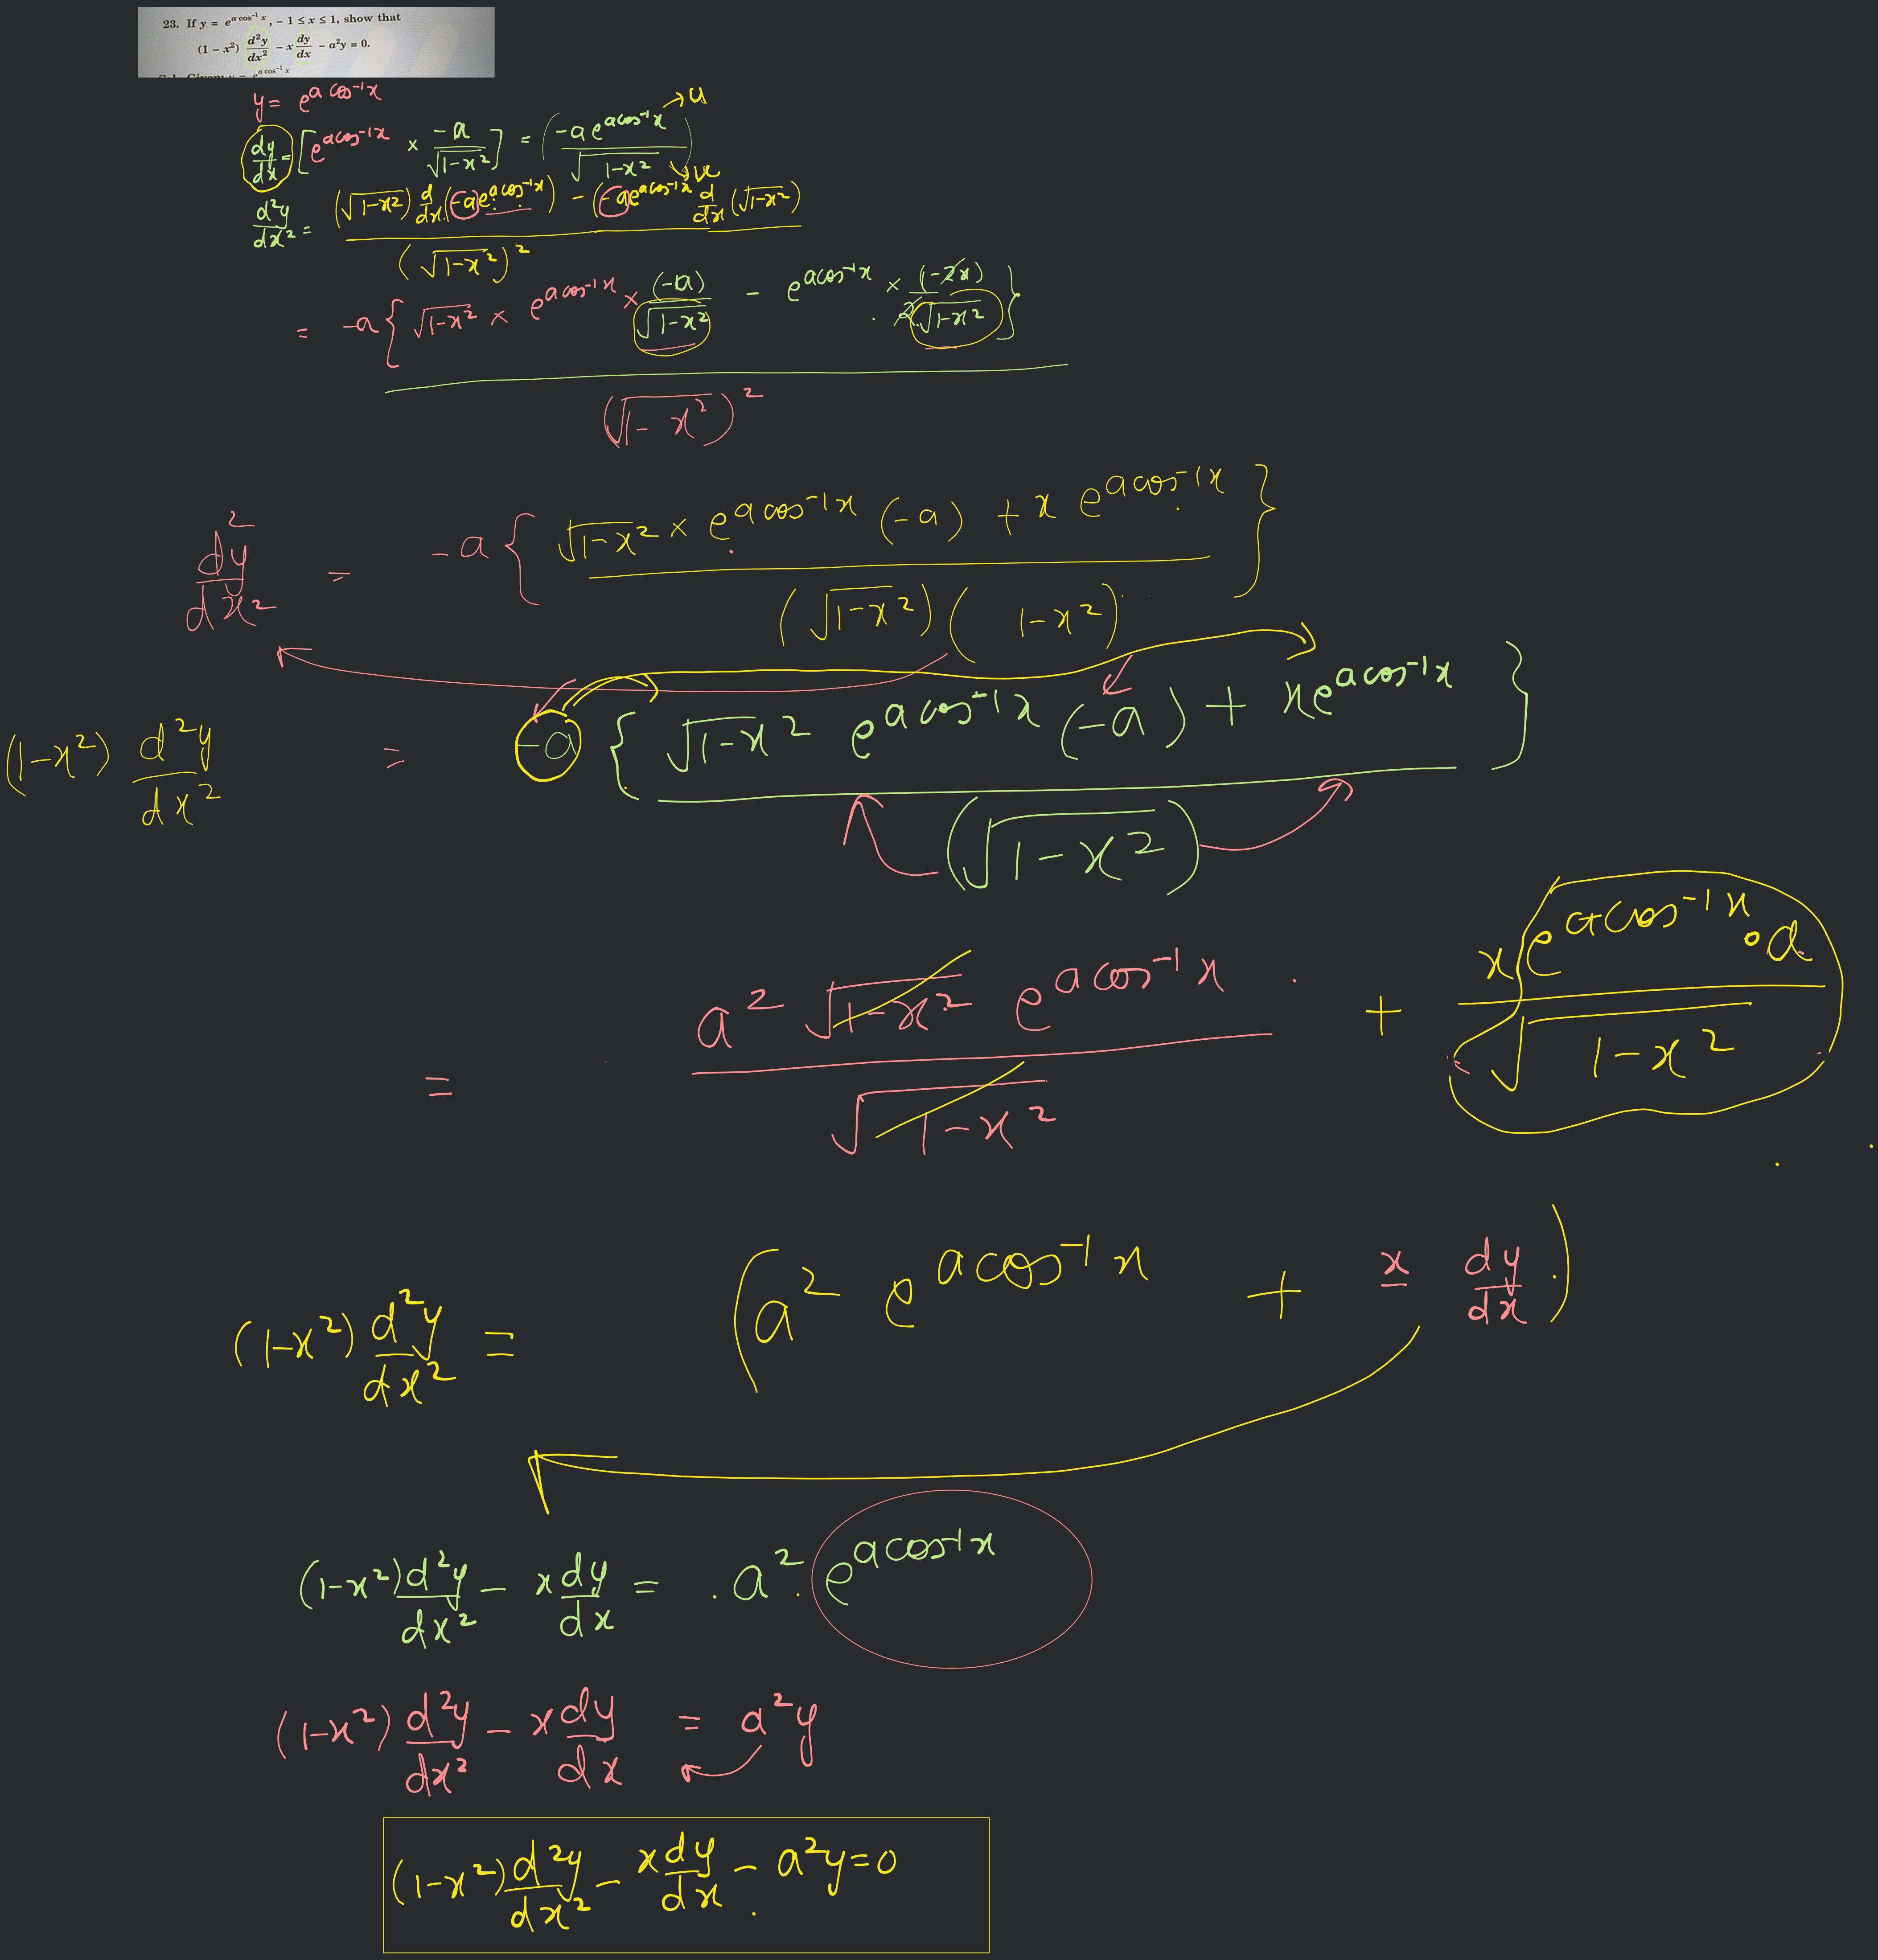 23. If y = e^{a cos⁻¹ x}, – 1 ≤ x ≤ 1, show that
(1 – x²) d²y/dx² – x dy/dx – a²y = 0.
y = e^{a cos⁻¹x}
dy/dx = [e^{a cos⁻¹x} × -a/√(1-x²)] = (-a e^{a cos⁻¹x} / √(1-x²)) → u
d²y/dx² = ((√(1-x²)) d/dx (-a e^{a cos⁻¹x}) - (-a e^{a cos⁻¹x} d/dx (√(1-x²))) / (√(1-x²))²
= -a{√(1-x²) × e^{a cos⁻¹x} × (-a)/√(1-x²) - e^{a cos⁻¹x} × (-2x)/2√(1-x²)} / (√(1-x²))²
d²y/dx² = -a {√(1-x²) × e^{a cos⁻¹x} (-a) + x e^{a cos⁻¹x} / (√(1-x²))(1-x²)}
(1-x²) d²y/dx² = -a {√(1-x²) e^{a cos⁻¹x} (-a) + x e^{a cos⁻¹x} / (√(1-x²))}
= a² √(1-x²) e^{a cos⁻¹x} / √(1-x²) + x e^{a cos⁻¹x} · a / -√(1-x²)
(1-x²) d²y/dx² = (a² e^{a cos⁻¹x} + x dy/dx)
(1-x²) d²y/dx² - x dy/dx = a² e^{a cos⁻¹x}
(1-x²) d²y/dx² - x dy/dx = a²y
(1-x²) d²y/dx² - x dy/dx - a²y = 0